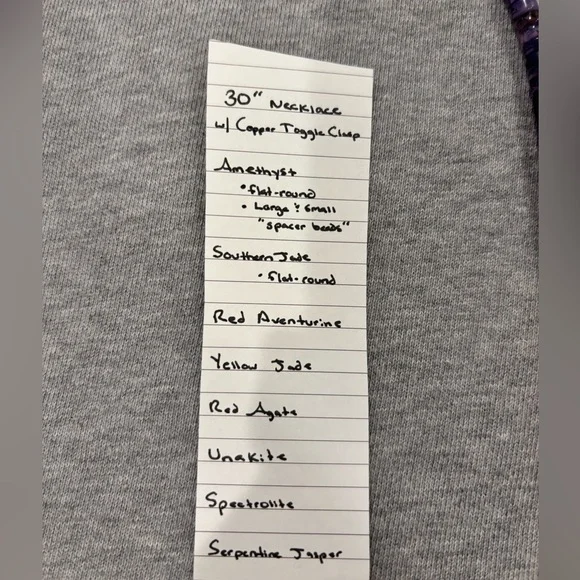 30" Necklace
w/ Copper Toggle Clasp
Amethyst
• flat-round
• Large & small
"spacer beads"
Southern Jade
• flat-round
Red Aventurine
Yellow Jade
Red Agate
Unakite
Spectrolite
Serpentine Jasper